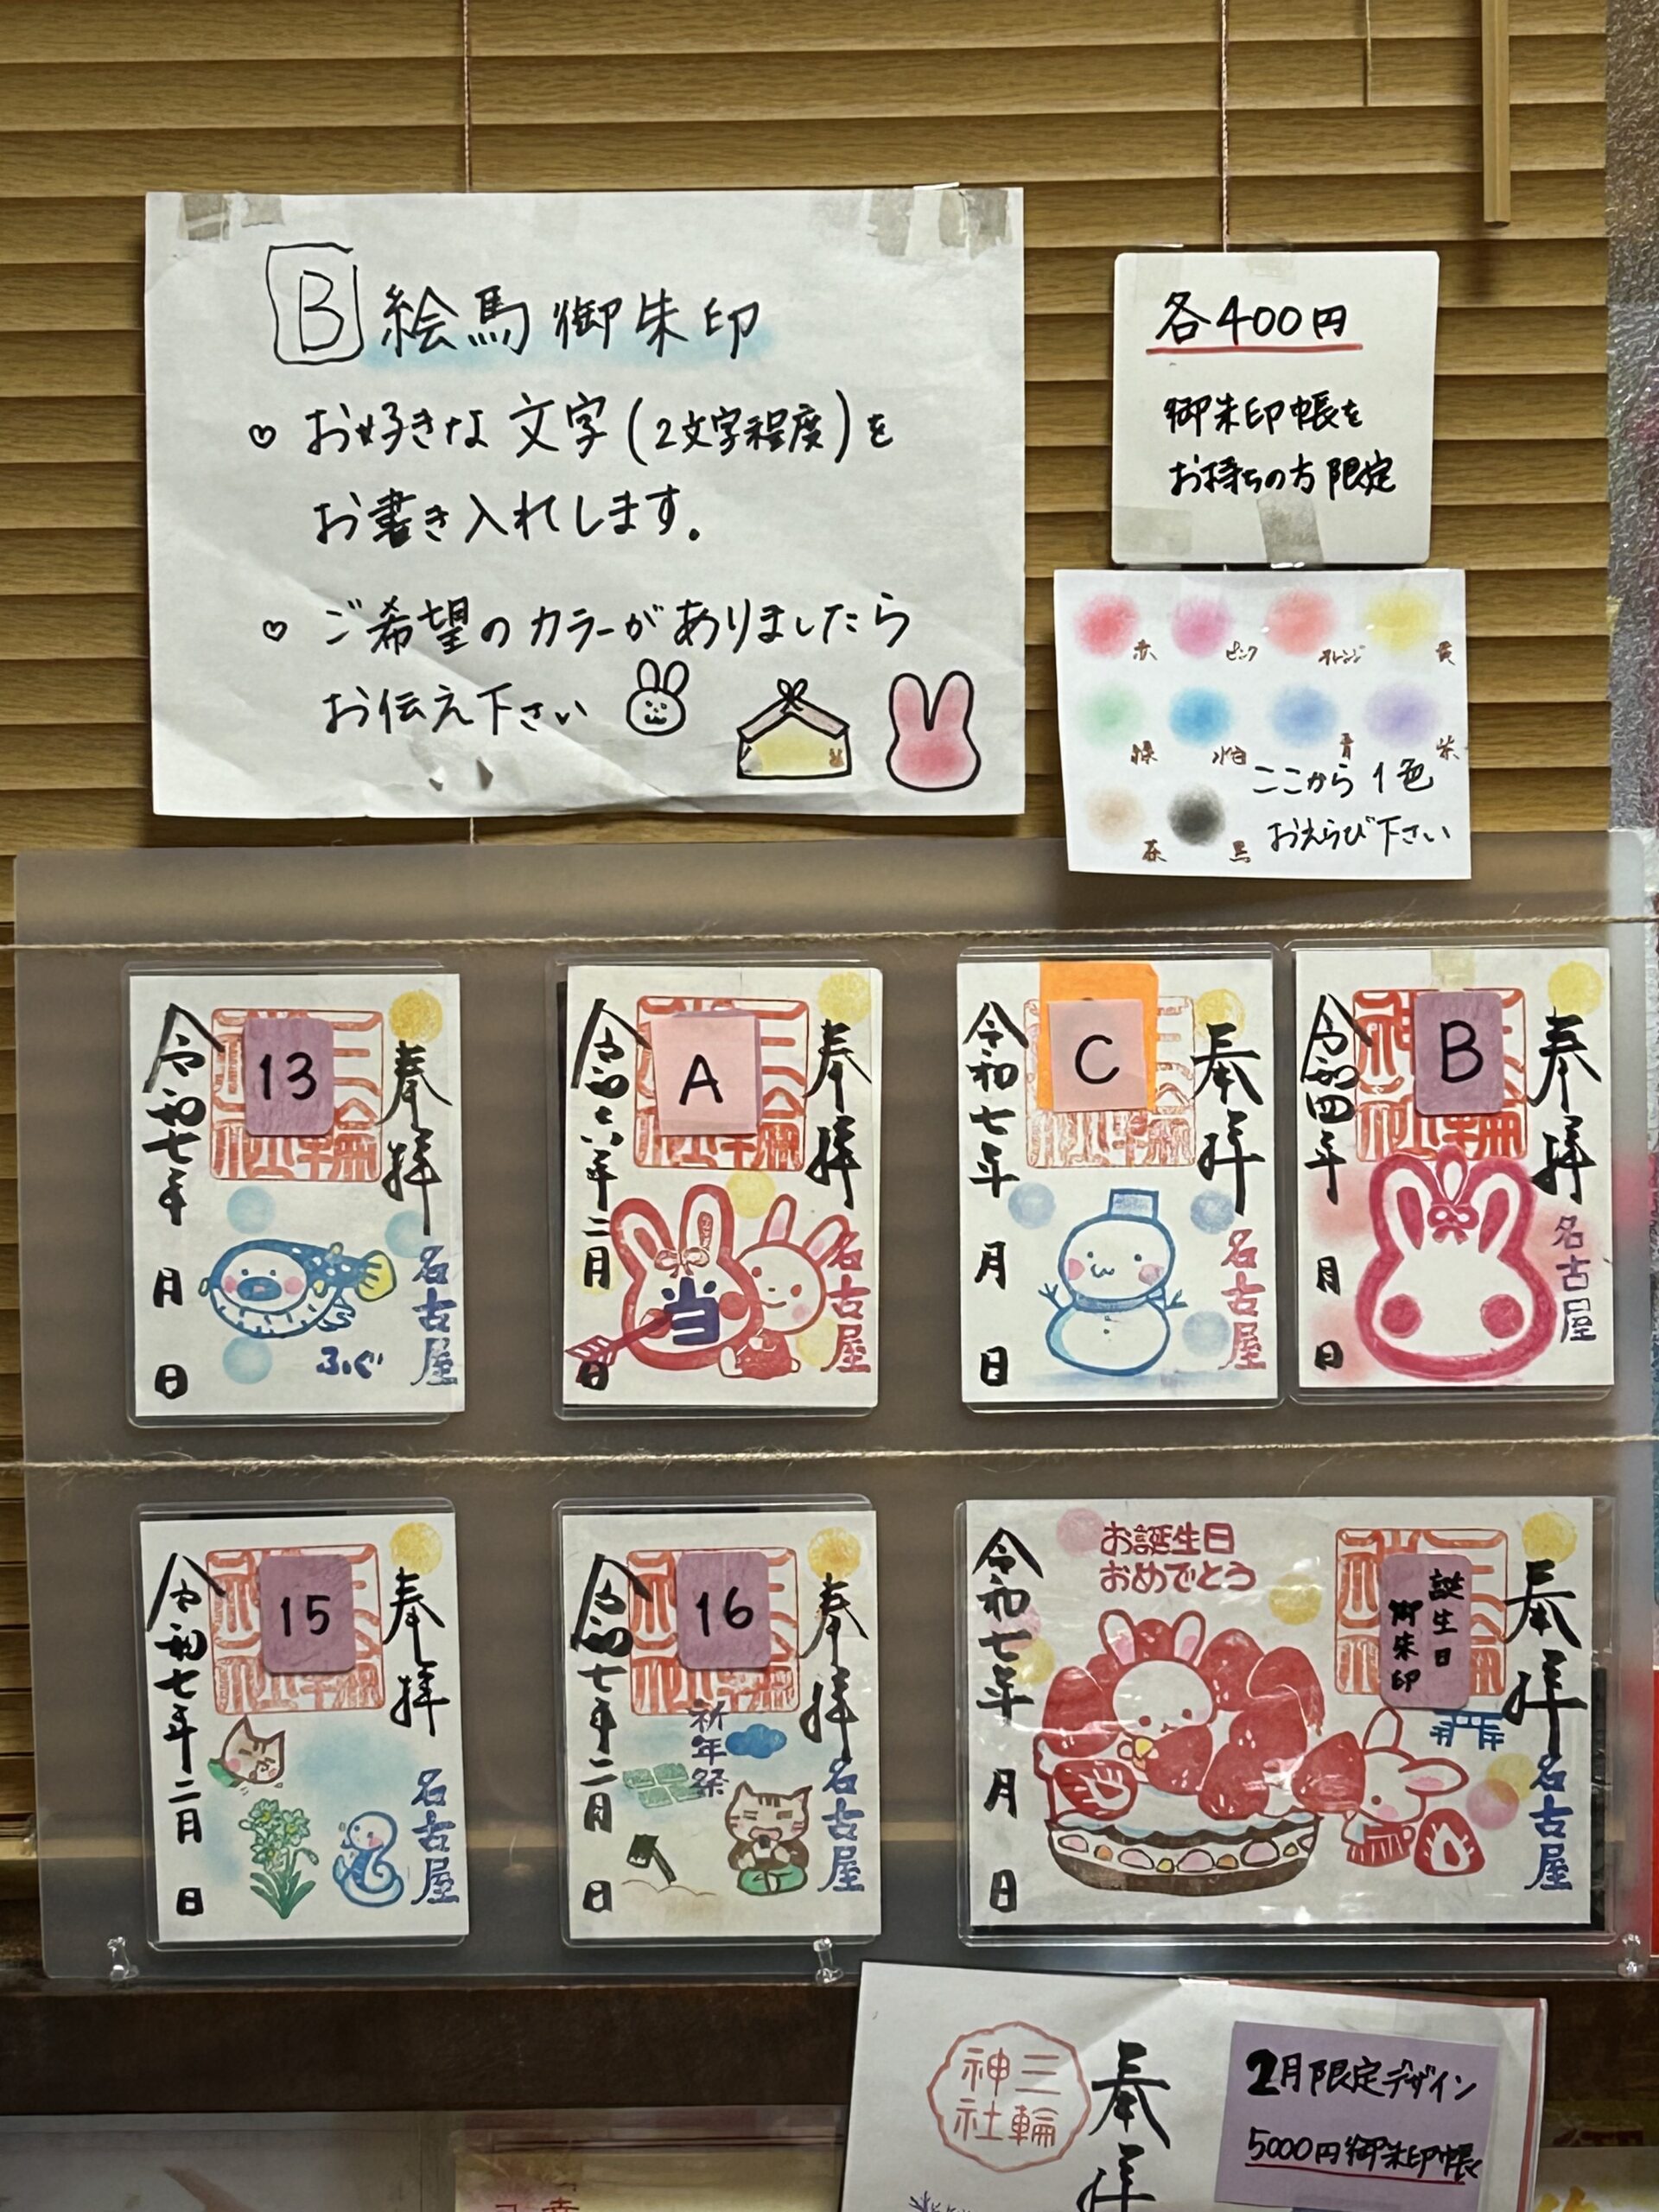 B 絵馬御朱印
♡ お好きな文字(2文字程度)を
お書き入れします。
♡ ご希望のカラーがありましたら
お伝え下さい
各400円
御朱印帳を
お持ちの方限定
赤 ピンク オレンジ 黄
緑 水色 青 紫
茶 黒
ここから1色
おえらび下さい
13
奉拝
名古屋
ふぐ
令和七年 月 日
A
奉拝
名古屋
当
二月 日
C
奉拝
名古屋
令和七年 月 日
B
奉拝
名古屋
令和四年 月 日
15
奉拝
名古屋
令和七年二月 日
16
奉拝
名古屋
祈年祭
令和七年二月 日
誕生日
御朱印
奉拝
名古屋
お誕生日
おめでとう
令和七年 月 日
奉拝
三輪
神社
2月限定デザイン
5000円御朱印帳